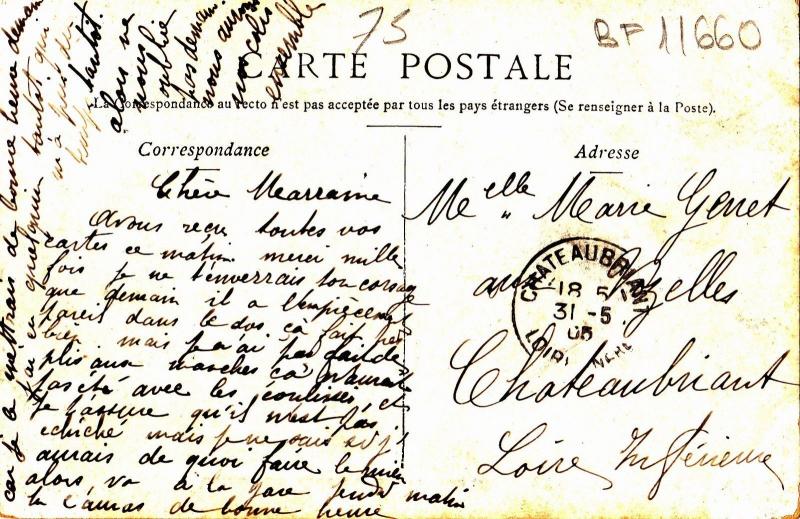 75
BF 11660
CARTE POSTALE
La Correspondance au recto n'est pas acceptée par tous les pays étrangers (Se renseigner à la Poste).
Correspondance
Adresse
Chère Marraine
Avons reçu toutes vos
cartes ce matin merci mille
fois je ne t'enverrais ton corsage
que demain il a l'empiècement
pareil dans le dos ça fait très
bien mais je n'ai pas
plis aux manches ça
avec les coulisses et
je t'assure qu'il n'est pas
mais je ne sais si j'
aurais de quoi faire le mien
alors va à la gare jeudi matin
tu l'auras de bonne heure
car je le mettrais de bonne heure demain
j'ai eu quelqu'un tantôt qui
m'a pris du
temps
tantôt.
alors ne
nous
oublie
pas demain
nous aurons
ensemble
Melle Marie Genet
aux
Chateaubriant
Loire Inférieure
CHATEAUBRIANT
31 -5
05